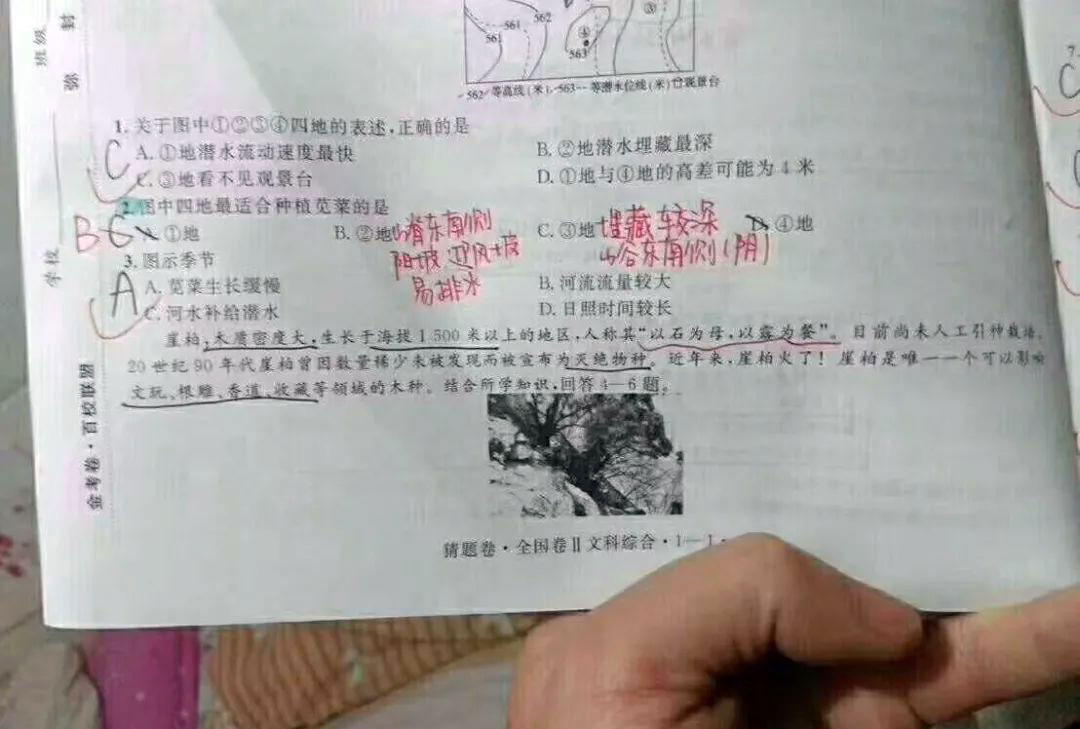 班级
封
弥
学校
金考卷·百校联盟
561
561
562
④
563
③
562 等高线(米) 563 等潜水位线(米) 观景台
1.关于图中①②③④四地的表述,正确的是
C
A.①地潜水流动速度最快
B.②地潜水埋藏最深
C.③地看不见观景台
D.①地与④地的高差可能为4米
2.图中四地最适合种植苋菜的是
B C
A.①地
B.②地
山脊东南侧
阳坡 迎风坡
易排水
C.③地
埋藏较深
山谷东南侧(阴)
D.④地
3.图示季节
A
A.苋菜生长缓慢
B.河流流量较大
C.河水补给潜水
D.日照时间较长
崖柏,木质密度大,生长于海拔1 500米以上的地区,人称其“以石为母,以露为餐”。目前尚未人工引种栽培。
20世纪90年代崖柏曾因数量稀少未被发现而被宣布为灭绝物种。近年来,崖柏火了!崖柏是唯一一个可以影响
文玩、根雕、香道、收藏等领域的木种。结合所学知识,回答4—6题。
猜题卷·全国卷Ⅱ文科综合·1—1
7.
C